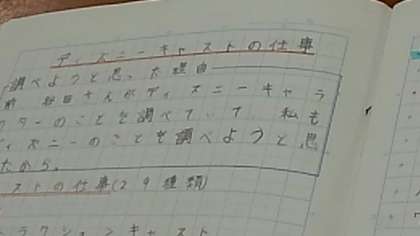 ディズニーキャストの仕事
調べようと思った理由
前 さんがディズニーキャラ
クターのことを調べていて、私も
ディズニーのことを調べようと思
たから。
ストの仕事(29種類)
ラクションキャスト